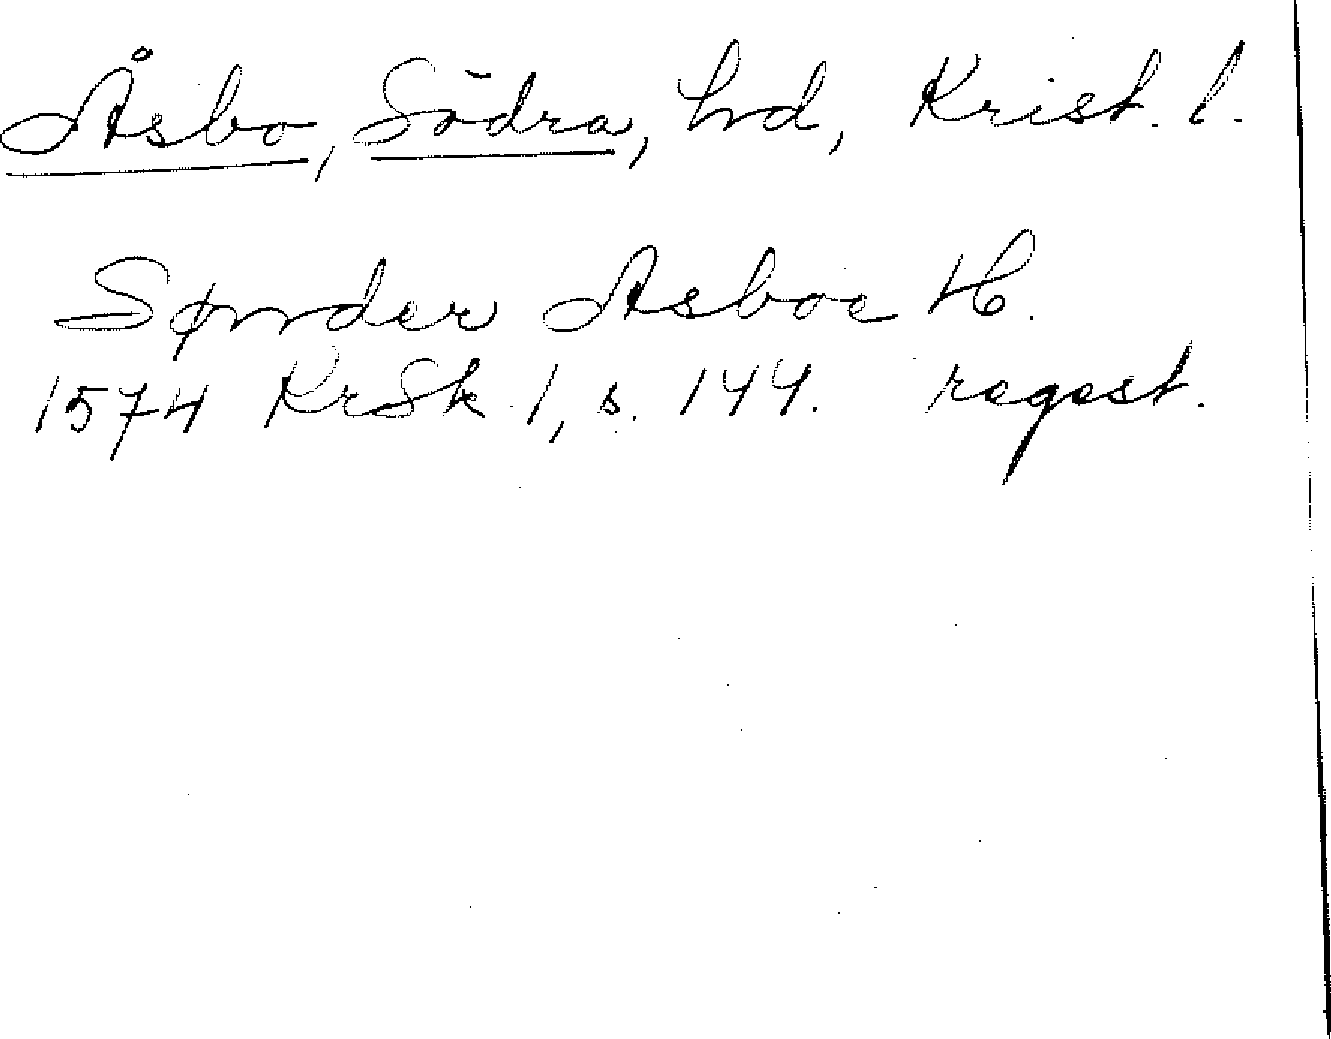 Åsbo, Södra, hrd, Krist. l.
Sønder Asboe H.
1574 KrSk 1, s. 144. regest.